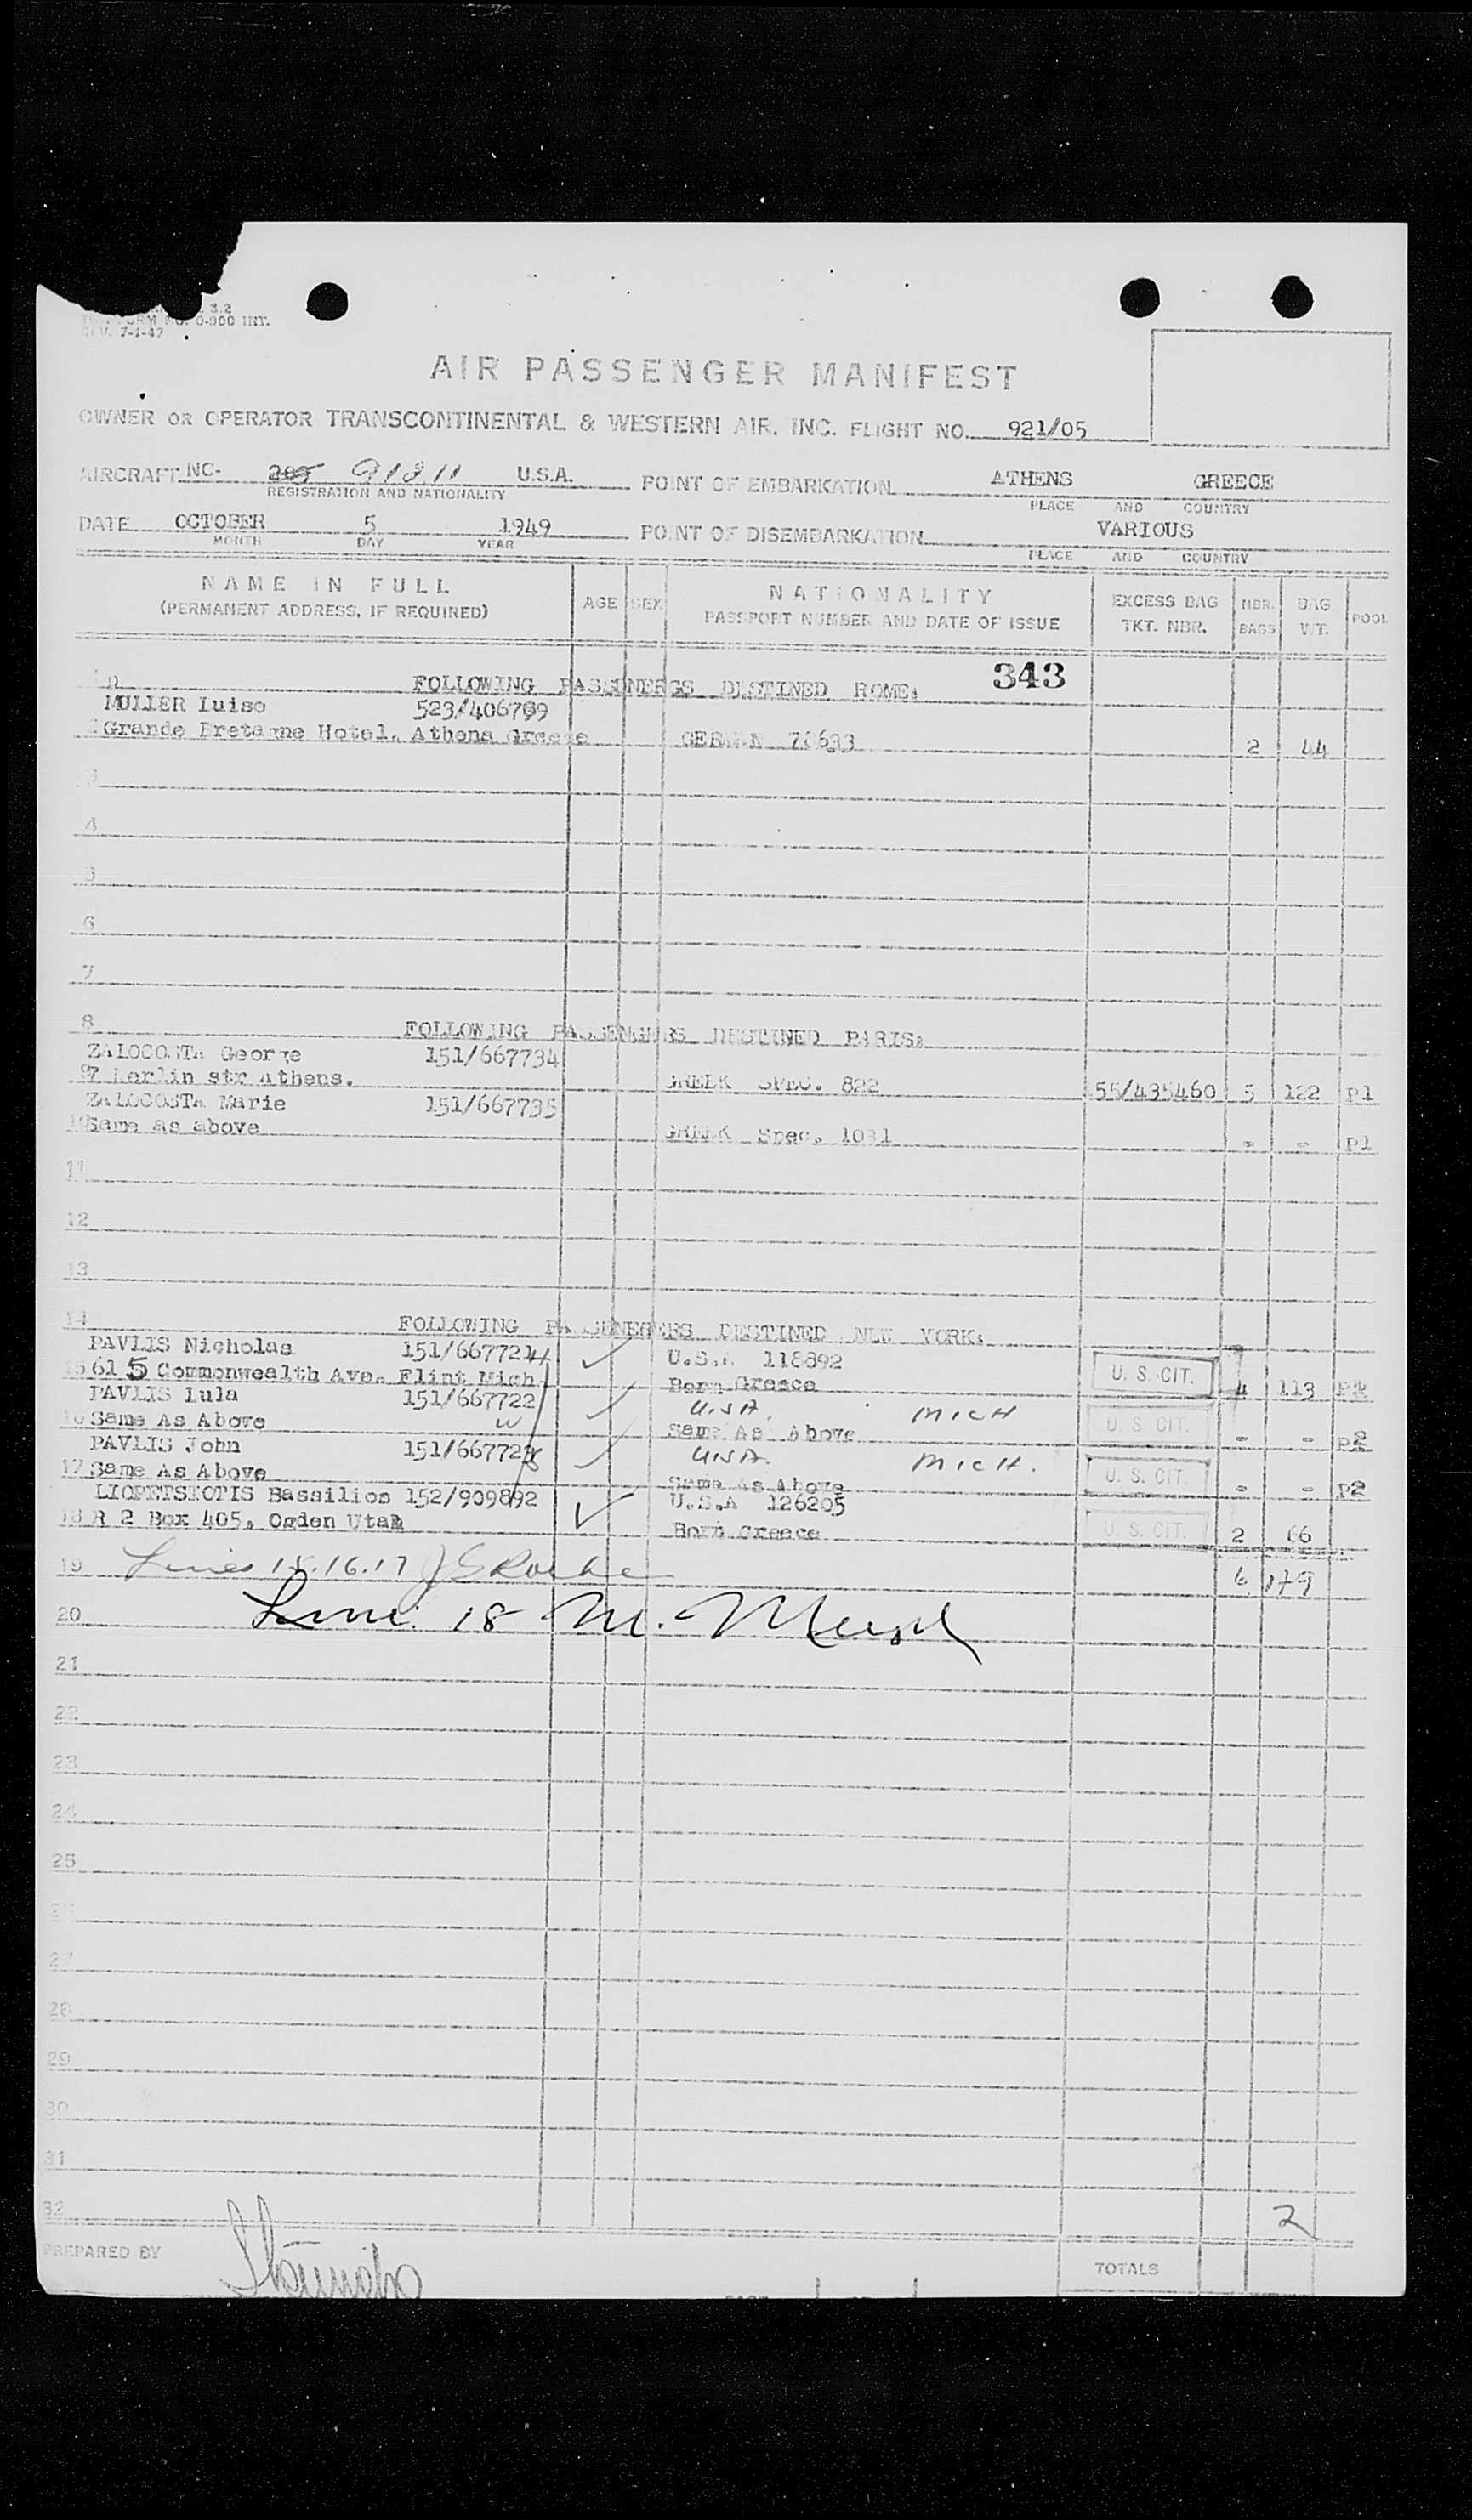 3.2
FORM NO. 0-900 INT.
REV. 7-1-47
AIR PASSENGER MANIFEST
OWNER OR OPERATOR TRANSCONTINENTAL & WESTERN AIR. INC. FLIGHT NO. 921/05
AIRCRAFT NC- U.S.A. POINT OF EMBARKATION ATHENS GREECE
REGISTRATION AND NATIONALITY PLACE AND COUNTRY
DATE OCTOBER 5 1949 POINT OF DISEMBARKATION VARIOUS
MONTH DAY YEAR PLACE AND COUNTRY
NAME IN FULL AGE SEX NATIONALITY EXCESS BAG NBR. BAG POOL
(PERMANENT ADDRESS, IF REQUIRED) PASSPORT NUMBER AND DATE OF ISSUE TKT. NBR. BAGS WT.
343
FOLLOWING PASSENERGS DESTINED ROME:
MULLER Luise
Grande Bretagne Hotel. Athens Greece GERMAN 2 44
3
4
5
6
7
8 FOLLOWING PASSENGERS DESTINED PARIS:
ZALOCOSTA George 151/667734
Berlin str Athens. GREEK SPEC. 822 55/435460 5 122 P1
ZALOCOSTA Marie 151/667735
10 Same As above GREEK Spec. 1031 - - P1
11
12
13
14 FOLLOWING PASSENERGERS DESTINED NEW YORK:
PAVLIS Nicholas U.S.A 118892
15 615 Commonwealth Ave. Flint Mich Born Greece U. S. CIT. 4 113 P2
PAVLIS Lula 151/667722 U.S.A. MICH
16 Same As Above Same As Above U. S. CIT. - - p2
PAVLIS John U.S.A. MICH.
17 Same As Above Same As Above U. S. CIT. - - p2
LIOPETSIOTIS Bassilios 152/909892 U.S.A 126205
18 R 2 Box 405. Ogden Utah Born Greece U. S. CIT. 2 66
19 Lines 15.16.17 6 179
20 Line 18 M.
21
22
23
24
25
26
27
28
29
30
31
32 2
PREPARED BY TOTALS